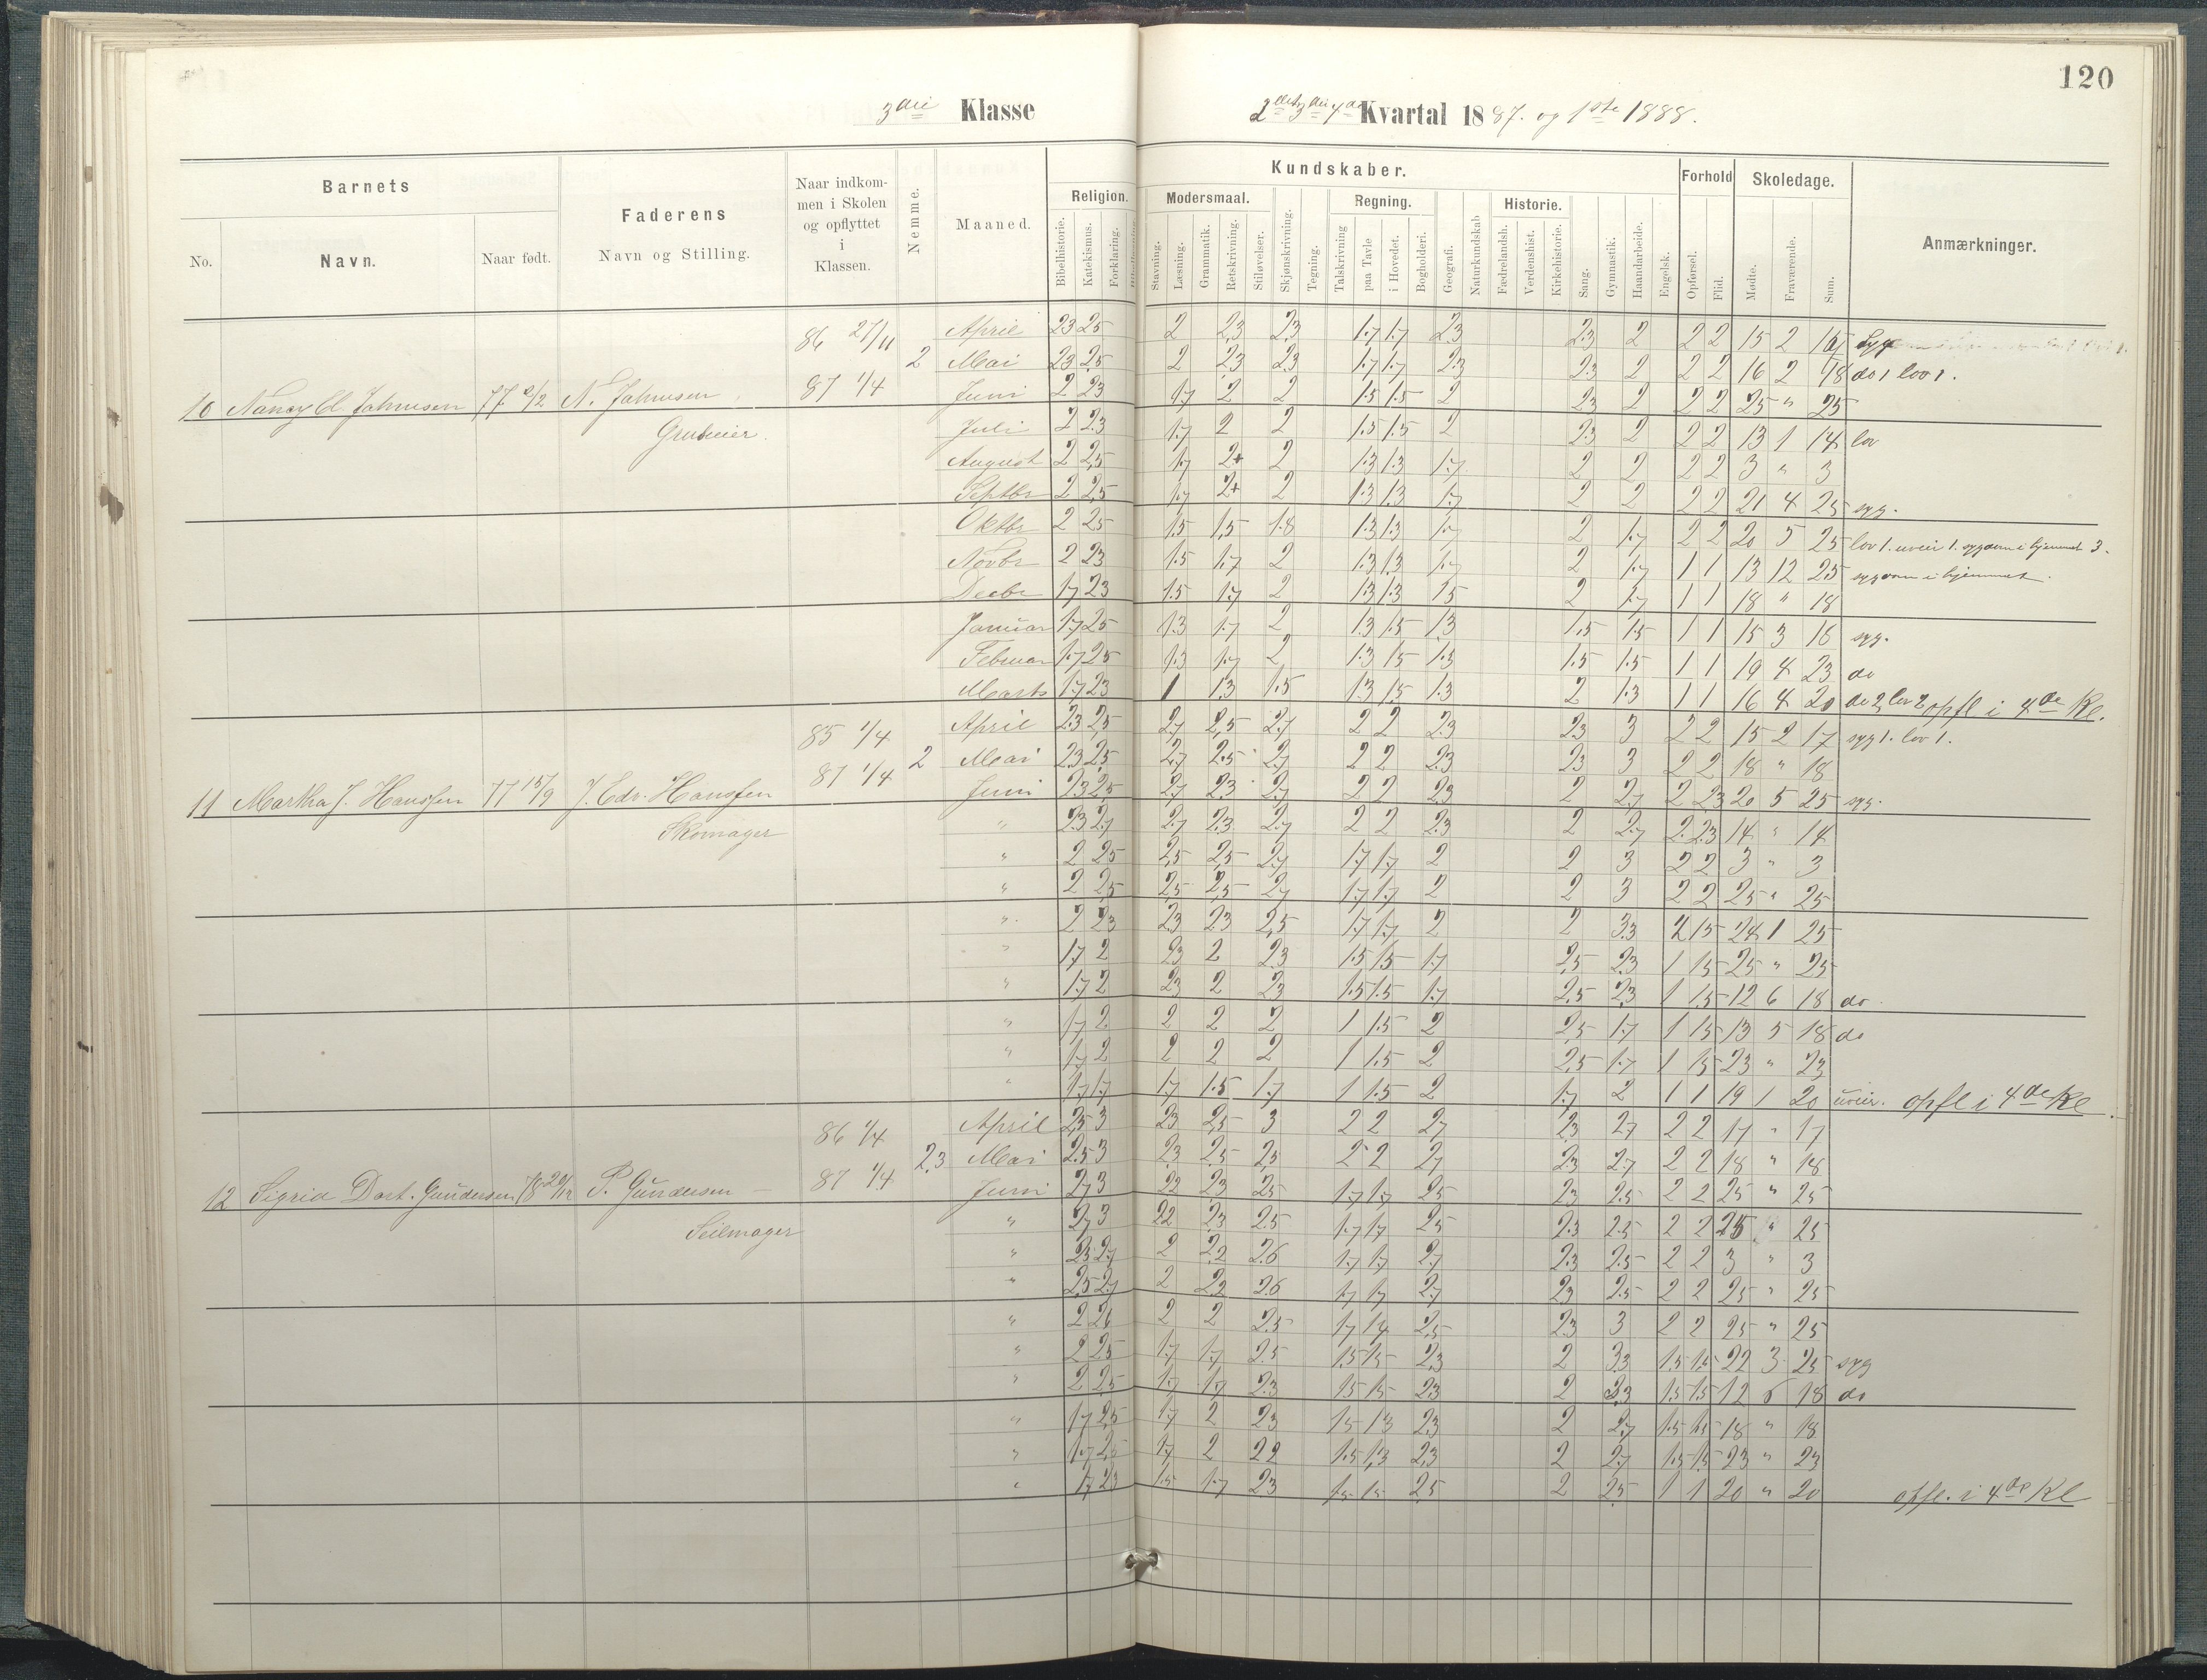 120
3die Klasse
2det 3die 4de Kvartal 1887. og 1ste 1888.
Barnets
No.
Navn.
Naar født.
Faderens
Navn og Stilling.
Naar indkom-
men i Skolen
og opflyttet
i
Klassen.
Nemme.
Maaned.
Kundskaber.
Religion.
Bibelhistorie.
Katekismus.
Forklaring.
Modersmaal.
Stavning.
Læsning.
Grammatik.
Retskrivning.
Stiløvelser.
Skjønskrivning.
Tegning.
Regning.
Talskrivning
paa Tavle
i Hovedet.
Bogholderi.
Geografi.
Naturkundskab
Historie.
Fædrelandsh.
Verdenshist.
Kirkehistorie.
Sang.
Gymnastik.
Haandarbeide.
Engelsk.
Forhold
Opførsel.
Flid.
Skoledage.
Mødte.
Fraværende.
Sum.
Anmærkninger.
86 27/11 April 23 25 2 2,3 2,3 1.7 1.7 2.3 2.3 2 2 2 15 2 syg
2 Mai 23 2,5 2 23 23 1.7 1.7 2.3 2.3 2 2 2 16 2 18 do 1 lov 1.
10 77 N. Johnsen 87 1/4 Juni 2 23 1.7 2 2 1.5 1.5 2 23 2 2 2 25 " 25
Juli 2 2.3 1.7 2 2 1.5 1.5 2 2.3 2 2 2 13 1 14 lov
August 2 2,5 1.7 2+ 2 1.3 1.3 1.7 2 2 2 2 3 " 3
Septbr 2 2,5 1.7 2+ 2 1.3 1.3 1.7 2 2 2 2 21 4 25 syg.
Oktbr 2 25 1.5 1,5 1.8 1.3 1.3 1.7 2 1.7 2 2 20 5 25 lov 1. uveir 1. sygdom i hjemmet 3.
Novbr 2 23 1.5 1.7 2 1.3 1.3 1.7 2 1.7 1 1 13 12 25 sygdom i hjemmet.
Decbr 1.7 23 1.5 1.7 2 1.3 1.3 1.5 2 1.7 1 1 18 " 18
Januar 1.7 25 1.3 1.7 2 1.3 1.5 1.3 1.5 1.5 1 1 15 3 16 syg.
Februar 1.7 25 1.3 1.7 2 1.3 1.5 1.3 1.5 1.5 1 1 19 4 23 do
Marts 1.7 23 1 1.3 1.5 1.3 1.5 1.3 2 1.3 1 1 16 4 20 do 2 lov 2 opfl i 4de Kl.
85 1/4 April 2.3 2,5 2.7 2,5 2.7 2 2 2.3 2.3 3 2 2 15 2 17 syg 1. lov 1.
87 1/4 2 Mai 2.3 2,5 2.7 2.5 2.7 2 2 2.3 2.3 3 2 2 18 " 18
11 Martha J. Hanssen 77 15/9 J. Edv. Hanssen Juni 2.3 2,5 2.7 2.3 2.7 2 2 2.3 2 2.7 2 2.3 20 5 25 syg.
Skomager " 2.3 2.7 2.7 2.3 2.7 2 2 2.3 2 2.7 2 2.3 14 " 14
" 2 2.5 2.5 2.5 2.7 1.7 1.7 2 2 3 2 2 3 " 3
" 2 2,5 2.5 2,5 2.7 1.7 1.7 2 2 3 2 2 25 " 25
" 2 23 2.3 2.3 2,5 1.7 1.7 2 2 3.3 2 1.5 24 1 25
" 1.7 2 23 2 2.3 1.5 1.5 1.7 2.5 2.3 1 1.5 25 " 25
" 1.7 2 23 2 23 1.5 1.5 1.7 2.5 2.3 1 1.5 12 6 18 do
" 1.7 2 2 2 2 1 1.5 2 2.5 1.7 1 1.5 13 5 18 do
" 1.7 2 2 2 2 1 1.5 2 2.5 1.7 1 1.5 23 " 23
" 1.7 1.7 1.7 1.5 1.7 1 1.5 2 1.7 2 1 1 19 1 20 uveir. opfl i 4de Kl.
86 1/4 April 2.5 3 23 2.5 3 2 2 2.7 2.3 2.7 2 2 17 " 17
2.3 Mai 2.5 3 2.3 2.5 2,5 2 2 2.7 2.3 2.7 2 2 18 " 18
12 Sigrid Dort. Gundersen 78 20/12 P. Gundersen 87 1/4 Juni 2.7 3 22 23 25 1.7 1.7 25 23 2.5 2 2 25 " 25
Seilmager " 2.7 3 22 2.3 2.5 1.7 1.7 25 2.3 2.5 2 2 25 " 25
" 2.5 2.7 2 2.2 2.6 1.7 1.7 2.7 2.3 2.5 2 2 3 " 3
" 2,5 2.7 2 2.2 2.6 1.7 1.7 2.7 23 2.5 2 2 25 " 25
" 2 26 2 2 2.5 1.7 1.4 2.5 2.3 3 2 2 25 " 25
" 2 25 1.7 1.7 2.5 1.5 1.5 2.3 2 3.3 1.5 1.5 22 3 25 syg
" 2 2.5 1.7 1.7 2.3 1.5 1.5 2.3 2 2.3 1.5 1.5 12 6 18 do
" 1.7 2.5 1.7 2 23 1.5 1.3 2.3 2 2.7 1.5 1.5 18 " 18
" 1.7 2.5 1.7 2 22 1.5 1.3 2.3 2 2.7 1.5 1.5 23 " 23
" 1.7 23 1.5 1.7 2.3 1.5 1.5 2.5 2 2.5 1 1 20 " 20 opfl. i 4de Kl